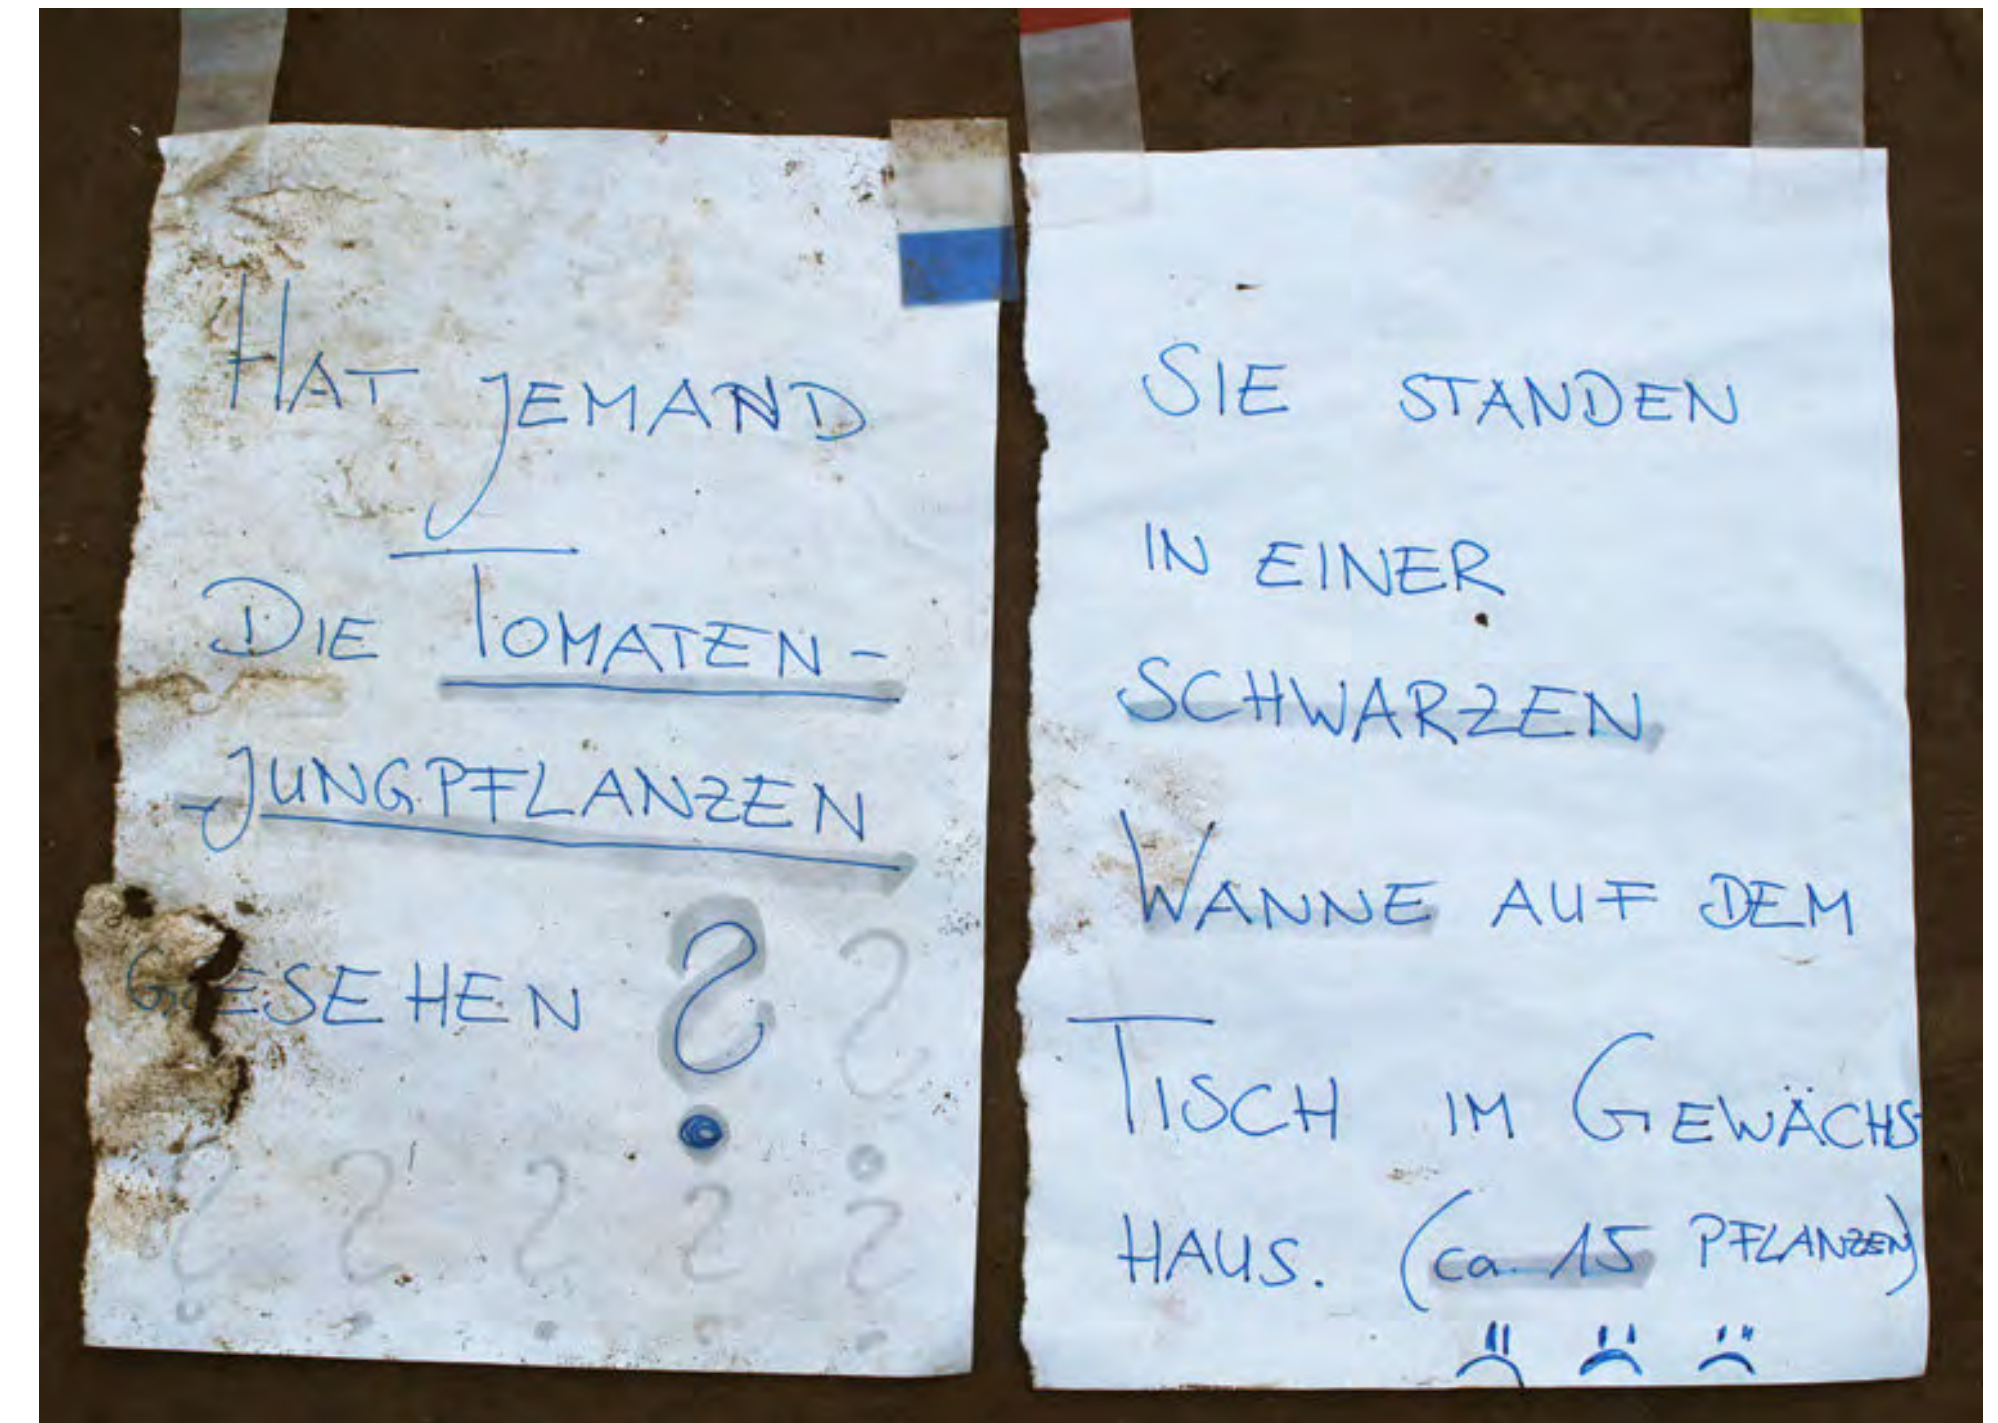 HAT JEMAND
DIE TOMATEN-
-JUNGPFLANZEN
GESEHEN ? ?
? ? ? ? ?
SIE STANDEN
IN EINER
SCHWARZEN
WANNE AUF DEM
TISCH IM GEWÄCHS-
HAUS. (ca. 15 PFLANZEN)